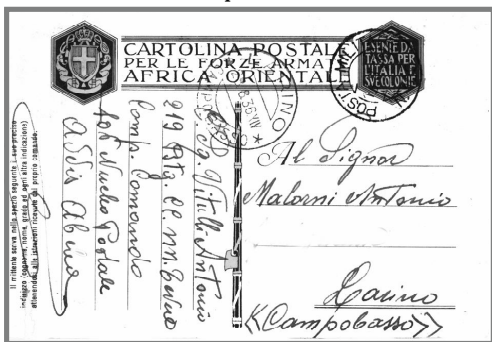 CARTOLINA POSTALE
PER LE FORZE ARMATE
AFRICA ORIENTALE
ESENTE DA
TASSA PER
L'ITALIA E
SUE COLONIE
POSTA MILIT
8.36 XIV
Il mittente scriva nello spazio seguente il suo preciso
indirizzo (cognome, nome, grado ed ogni altra indicazione)
attenendosi alle istruzioni ricevute dal proprio comando.
Vitulli Antonio
219 Btg. CC. NN.
Comp. Comando
Nucleo Postale
Addis Abeba
Al Signor
Malorni Antonio
Larino
<<Campobasso>>